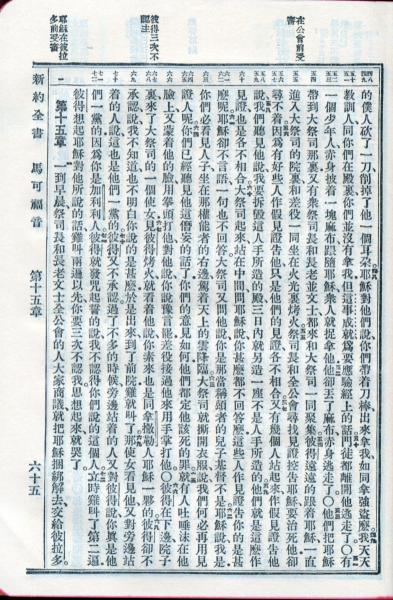 在公會前受審
彼得三次不認主
耶穌在彼拉多前受審
的僕人砍了一刀削掉了他一個耳朵耶穌對他們說你們帶着刀棒出來拿我如同拿強盜麼我天天
教訓人同你們在殿裏你們並沒有拿我但這事成就爲要應驗經上的話門徒都離開他逃走了〇有
一個少年人赤身披着一塊麻布跟隨耶穌衆人就捉拿他他卻丟了麻布赤身逃走了〇他們把耶穌
帶到大祭司那裏又有衆祭司長和長老並文士都來和大祭司一同聚集彼得遠遠的跟着耶穌一直
進入大祭司的院裏和差役一同坐在火光裏烤火祭司長和全公會尋找見證控告耶穌要治死他卻
尋不着因爲有好些人作假見證告他只是他們的見證各不相合又有幾個人站起來作假見證告他
說我們聽見他說我要拆毀這人手所造的殿三日內就另造一座不是人手所造的他們就是這麼作
見證也是各不相合大祭司起來站在中間問耶穌說你甚麼都不回答麼這些人作見證告你的是甚
麼呢耶穌卻不言語一句也不回答大祭司又問他說你是那當稱頌者的兒子基督不是耶穌說我是
你們必看見人子坐在那權能者的右邊駕着天上的雲降臨大祭司就撕開衣服說我們何必再用見
證人呢你們已經聽見他這僭妄的話了你們的意見如何他們都定他該死的罪就有人吐唾沫在他
臉上又蒙着他的臉用拳頭打他對他說你說豫言罷差役接過他來用手掌打他〇彼得在下邊院子
裏來了大祭司的一個使女見彼得烤火就看着他說你素來也是同拿撒勒人耶穌一夥的彼得卻不
承認說我不知道也不明白你說的是甚麼於是出來到了前院雞就叫了那使女看見他又對旁邊站
着的人說這也是他們一黨的彼得又不承認過了不多的時候旁邊站着的人又對彼得說你真是他
們一黨的因爲你是加利利人彼得就發咒起誓的說我不認得你們說的這個人立時雞叫了第二遍
彼得想起耶穌對他所說的話雞叫兩遍以先你要三次不認我思想起來就哭了
第十五章 一到早晨祭司長和長老文士全公會的人大家商議就把耶穌捆綁解去交給彼拉多
新約全書 馬可福音 第十五章 六十五